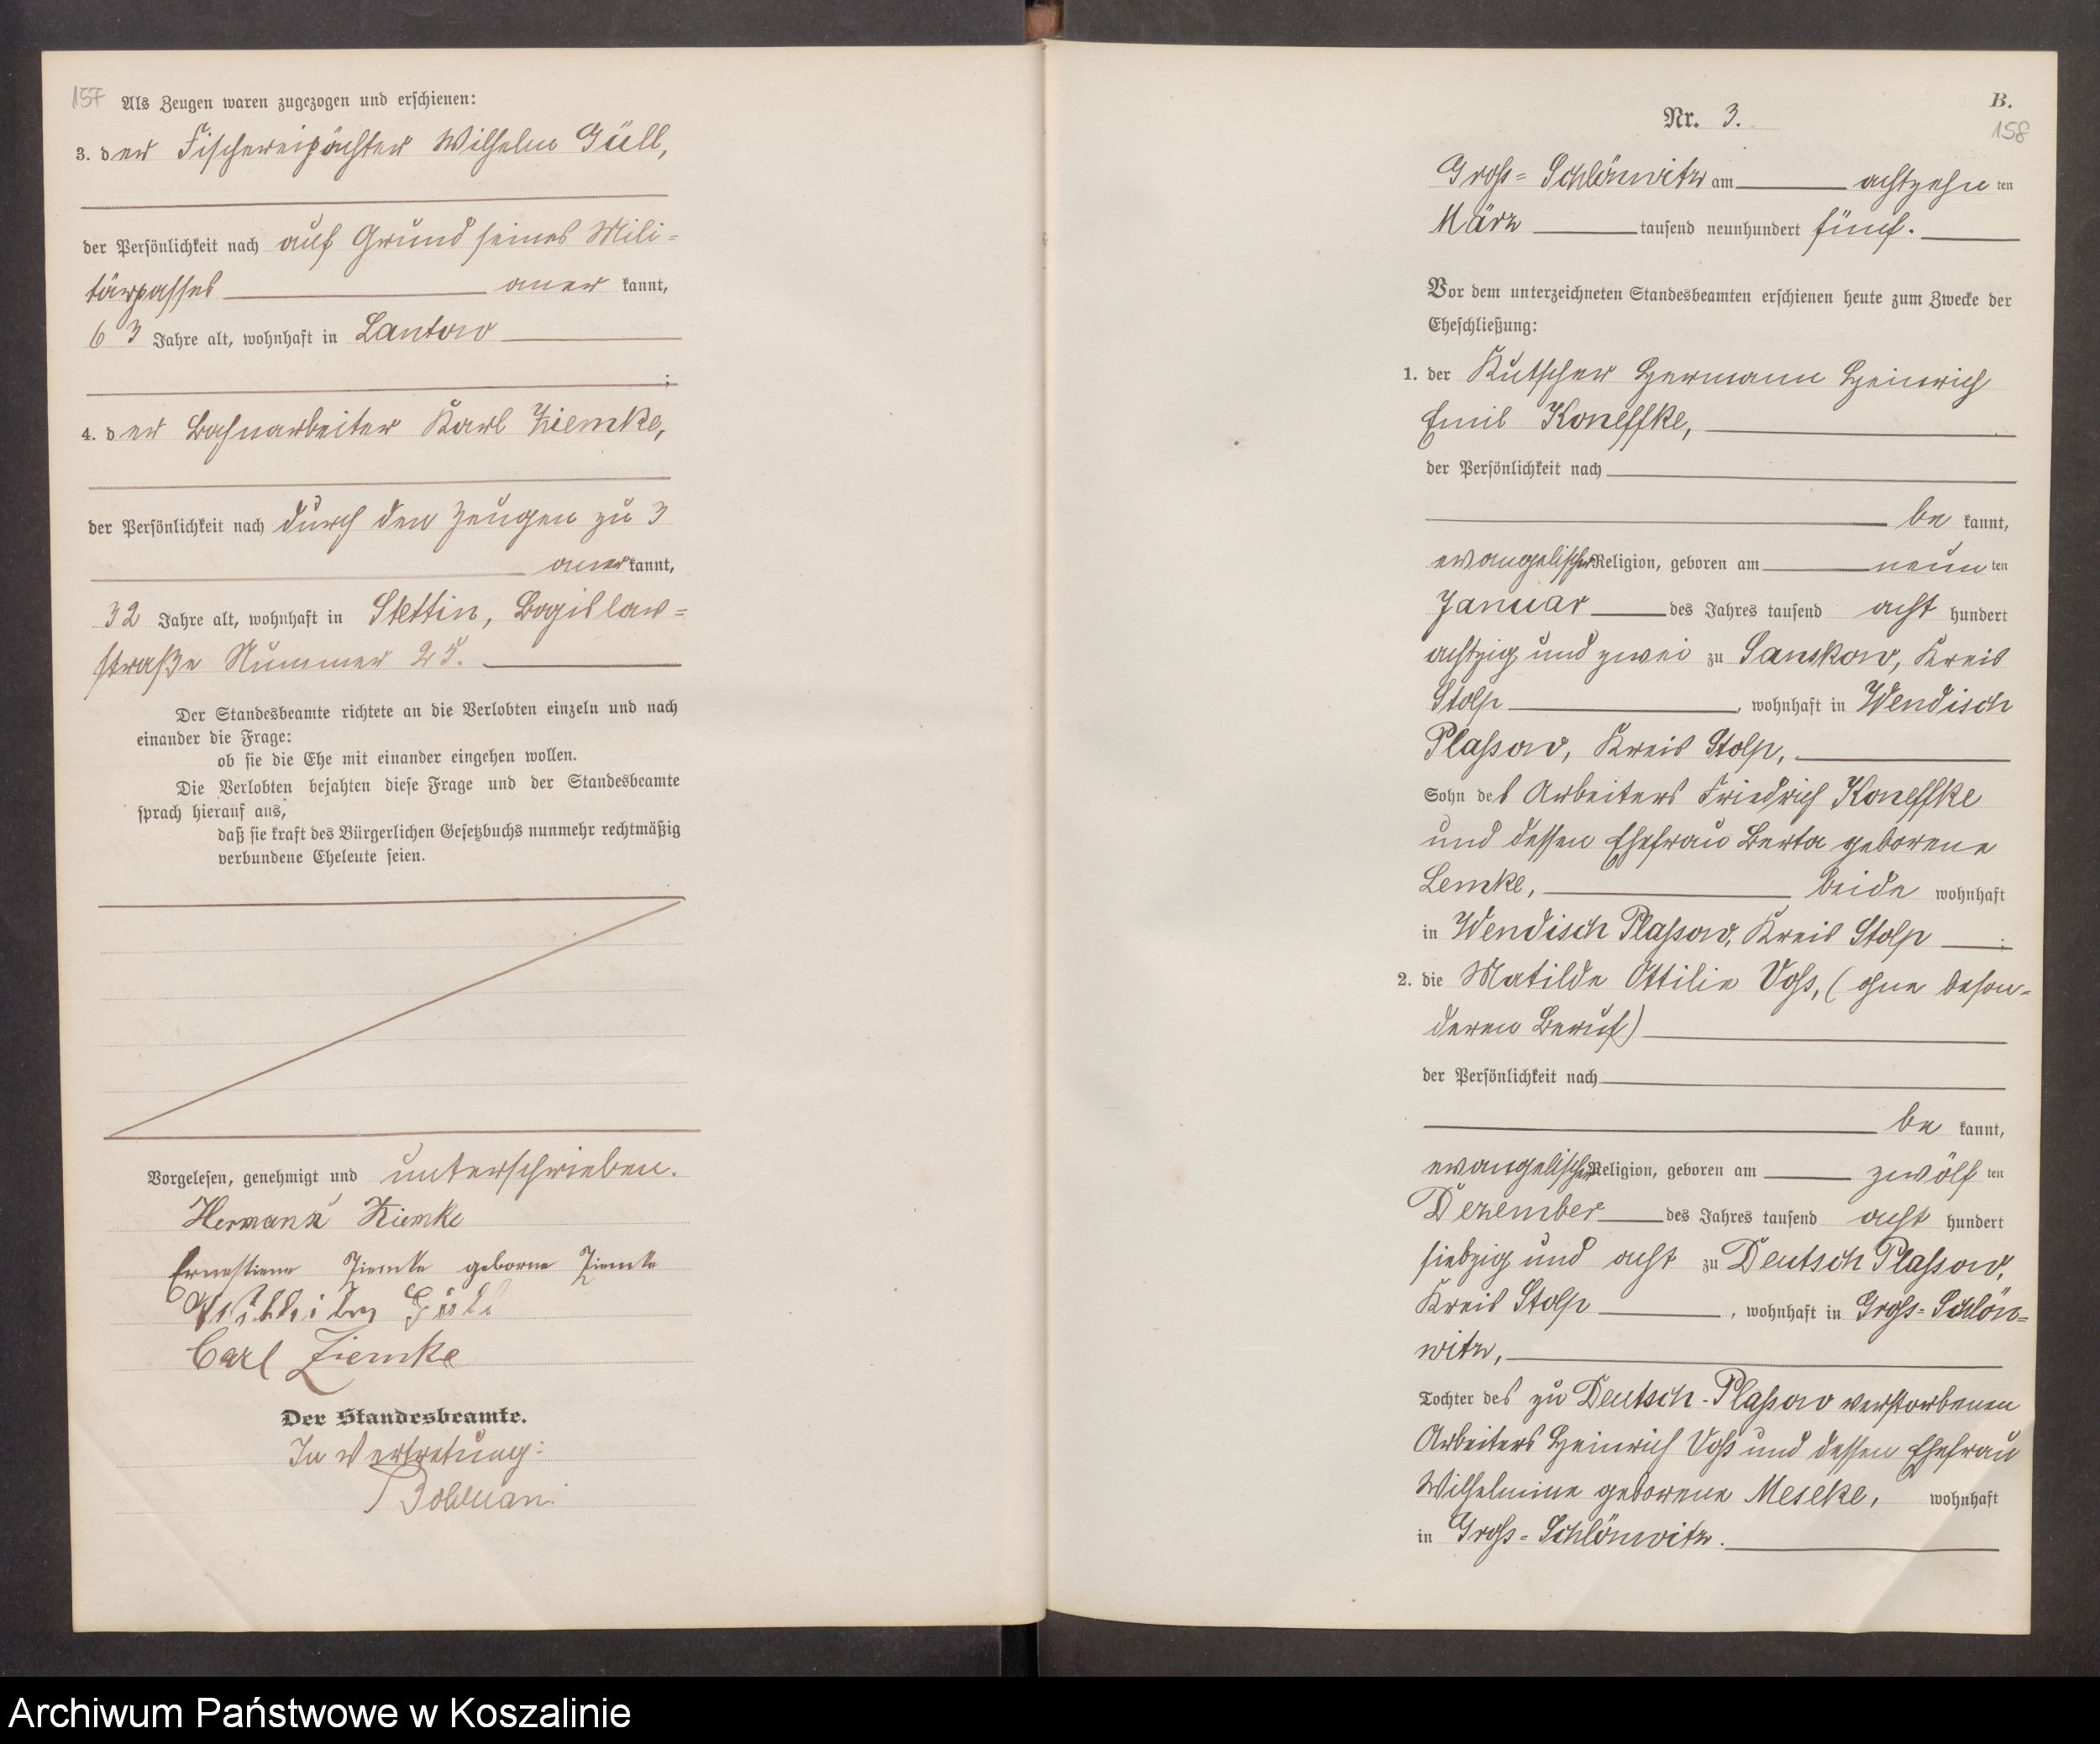 157
Als Zeugen waren zugezogen und erschienen:
3. der Fischereipächter Wilhelm Güll,
der Persönlichkeit nach auf Grund seines Mili=
tärpasses aner kannt,
63 Jahre alt, wohnhaft in Lantow
;
4. der Bahnarbeiter Karl Ziemke,
der Persönlichkeit nach durch den Zeugen zu 3
aner kannt,
32 Jahre alt, wohnhaft in Stettin, Bogislaw=
straße Nummer 25.
Der Standesbeamte richtete an die Verlobten einzeln und nach
einander die Frage:
ob sie die Ehe mit einander eingehen wollen.
Die Verlobten bejahten diese Frage und der Standesbeamte
sprach hierauf aus,
daß sie kraft des Bürgerlichen Gesetzbuchs nunmehr rechtmäßig
verbundene Eheleute seien.
Vorgelesen, genehmigt und unterschrieben.
Hermann Ziemke
Ernestiene Ziemke geborne Ziemke
Wilhelm Güll
Carl Ziemke
Der Standesbeamte.
In Vertretung:
B.
Nr. 3.
158
Groß=Schlönwitz am achtzehn ten
März tausend neunhundert fünf.
Vor dem unterzeichneten Standesbeamten erschienen heute zum Zwecke der
Eheschließung:
1. der Kutscher Hermann Heinrich
Emil Koneffke,
der Persönlichkeit nach
be kannt,
evangelischer Religion, geboren am neun ten
Januar des Jahres tausend acht hundert
achtzig und zwei zu Sanskow, Kreis
Stolp, wohnhaft in Wendisch
Plassow, Kreis Stolp,
Sohn des Arbeiters Friedrich Koneffke
und dessen Ehefrau Berta geborene
Lemke, beide wohnhaft
in Wendisch Plassow, Kreis Stolp ;
2. die Matilde Ottilie Voss, (ohne beson=
deren Beruf)
der Persönlichkeit nach
be kannt,
evangelischer Religion, geboren am zwölf ten
Dezember des Jahres tausend acht hundert
siebzig und acht zu Deutsch Plassow,
Kreis Stolp, wohnhaft in Groß=Schlön=
witz,
Tochter des zu Deutsch-Plassow verstorbenen
Arbeiters Heinrich Voss und dessen Ehefrau
Wilhelmine geborene Meseke, wohnhaft
in Groß=Schlönwitz.
Archiwum Państwowe w Koszalinie